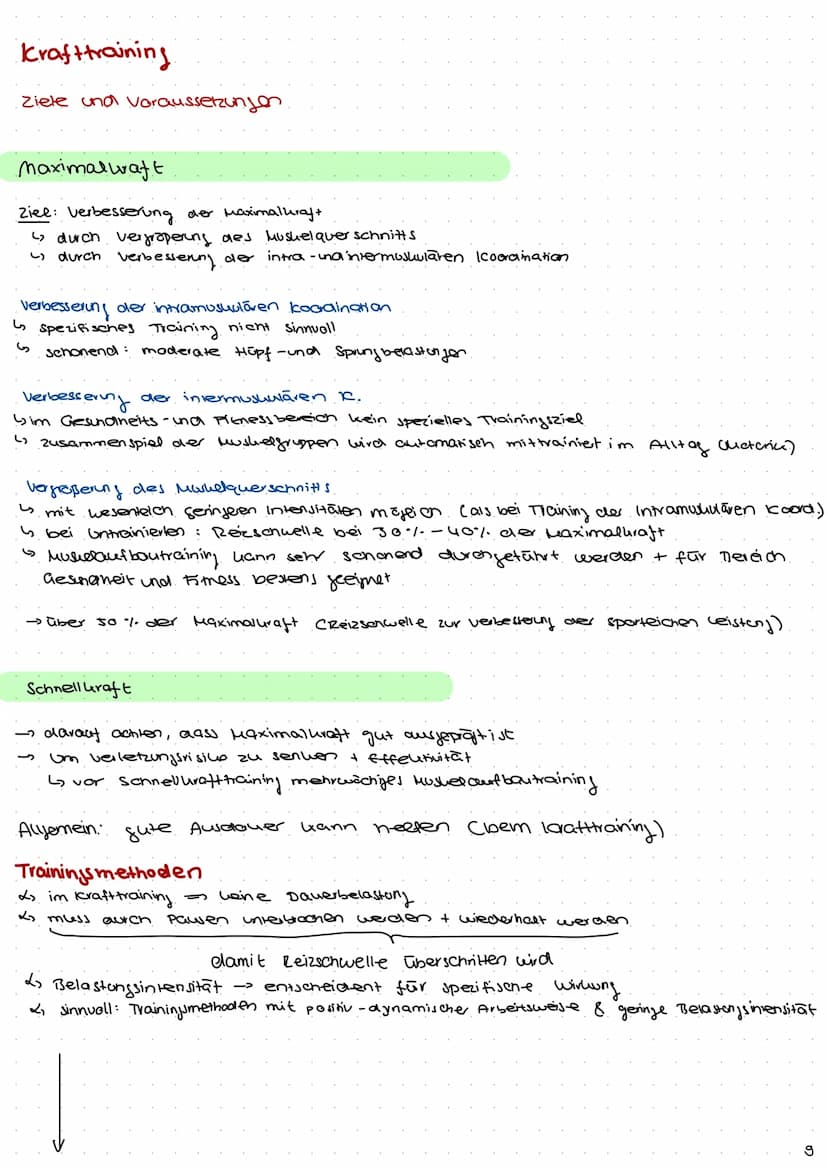 Krafttraining
Ziele und Voraussetzungen
Maximalkraft
Ziel: Verbesserung der Maximalkraft
↳ durch Vergrößerung des Muskelquerschnitts
↳ durch Verbesserung der intra-und intermuskulären Koordination
Verbesserung der intramuskulären Koordination
↳ spezifisches Training nicht sinnvoll
↳ schonend: moderate Hüpf-und Sprungbelastungen
Verbesserung der intermuskulären K.
↳ im Gesundheits-und Fitnessbereich kein spezielles Trainingsziel
↳ Zusammenspiel der Muskelgruppen wird automatisch mittrainiert im Alltag (Motorik)
Vergrößerung des Muskelquerschnitts
↳ mit wesentlich geringeren Intensitäten möglich (als bei Training der Intramuskulären Koord.)
↳ bei Untrainierten: Reizschwelle bei 30%-40% der Maximalkraft
↳ Muskelaufbautraining kann sehr schonend durchgeführt werden + für Bereich
Gesundheit und Fitness bestens geeignet
→ über 50% der Maximalkraft (Reizschwelle zur Verbesserung der sportlichen Leistung)
Schnellkraft
→ darauf achten, dass Maximalkraft gut ausgeprägt ist
→ um Verletzungsrisiko zu senken + Effektivität
↳ vor Schnellkrafttraining mehrwöchiges Muskelaufbautraining
Allgemein: gute Ausdauer kann helfen (beim Krafttraining)
Trainingsmethoden
↳ im Krafttraining ⇒ keine Dauerbelastung
↳ muss durch Pausen unterbrochen werden + wiederholt werden
damit Reizschwelle überschritten wird
↳ Belastungsintensität → entscheident für spezifische Wirkung
↳ sinnvoll: Trainingsmethoden mit positiv-dynamischer Arbeitsweise & geringe Belastungsintensität
9